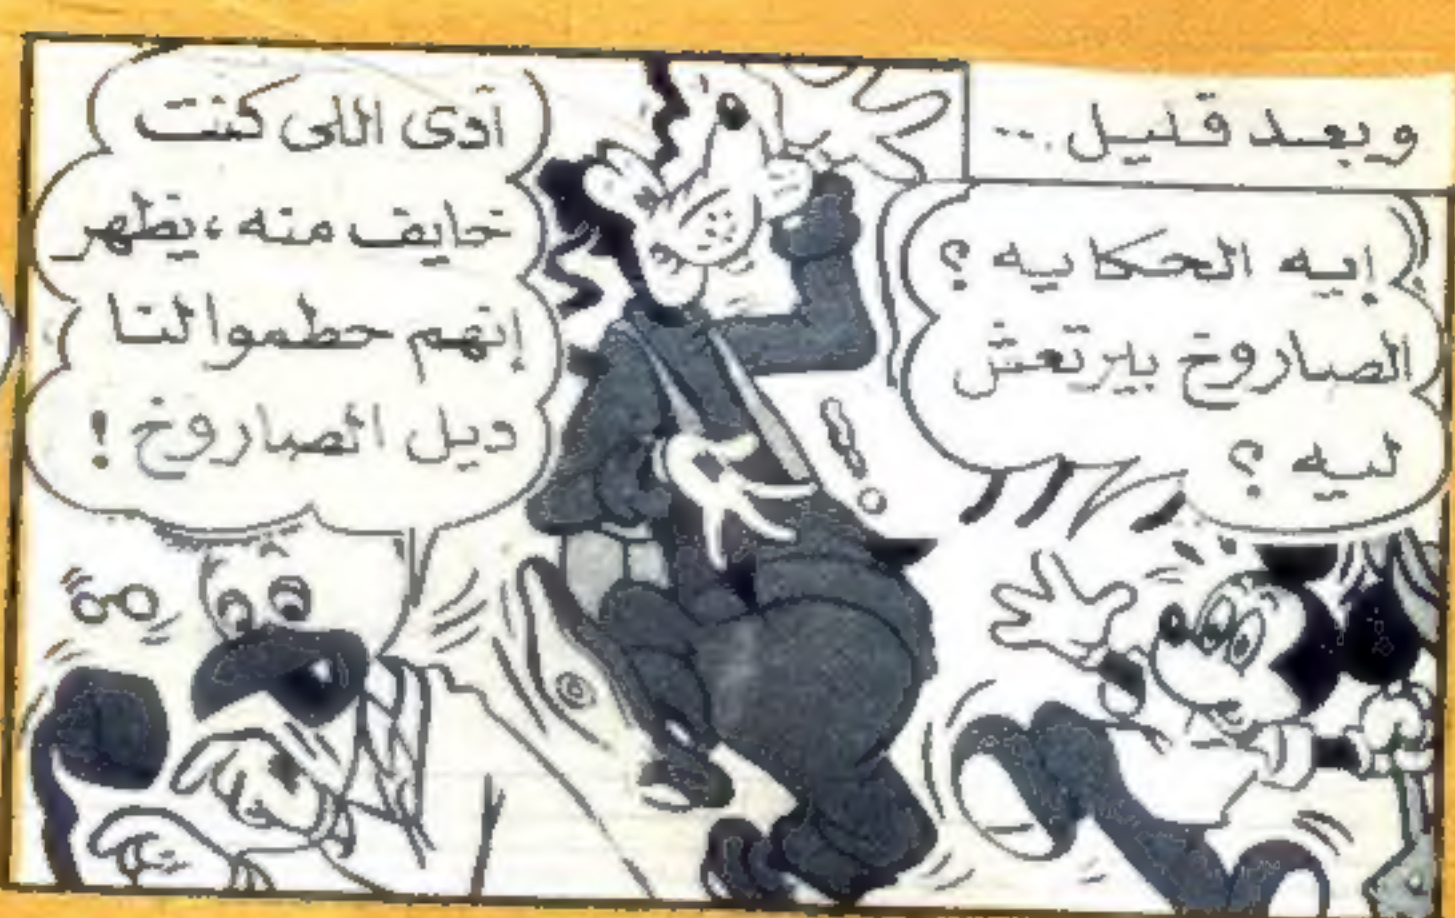 وبعد قليل ..
إيه الحكاييه ؟
الصاروخ بيرتعش
ليه ؟
آدى اللى كنت
خايف منه ، يظهر
إنهم حطموا لنا
ديل الصاروخ !
!